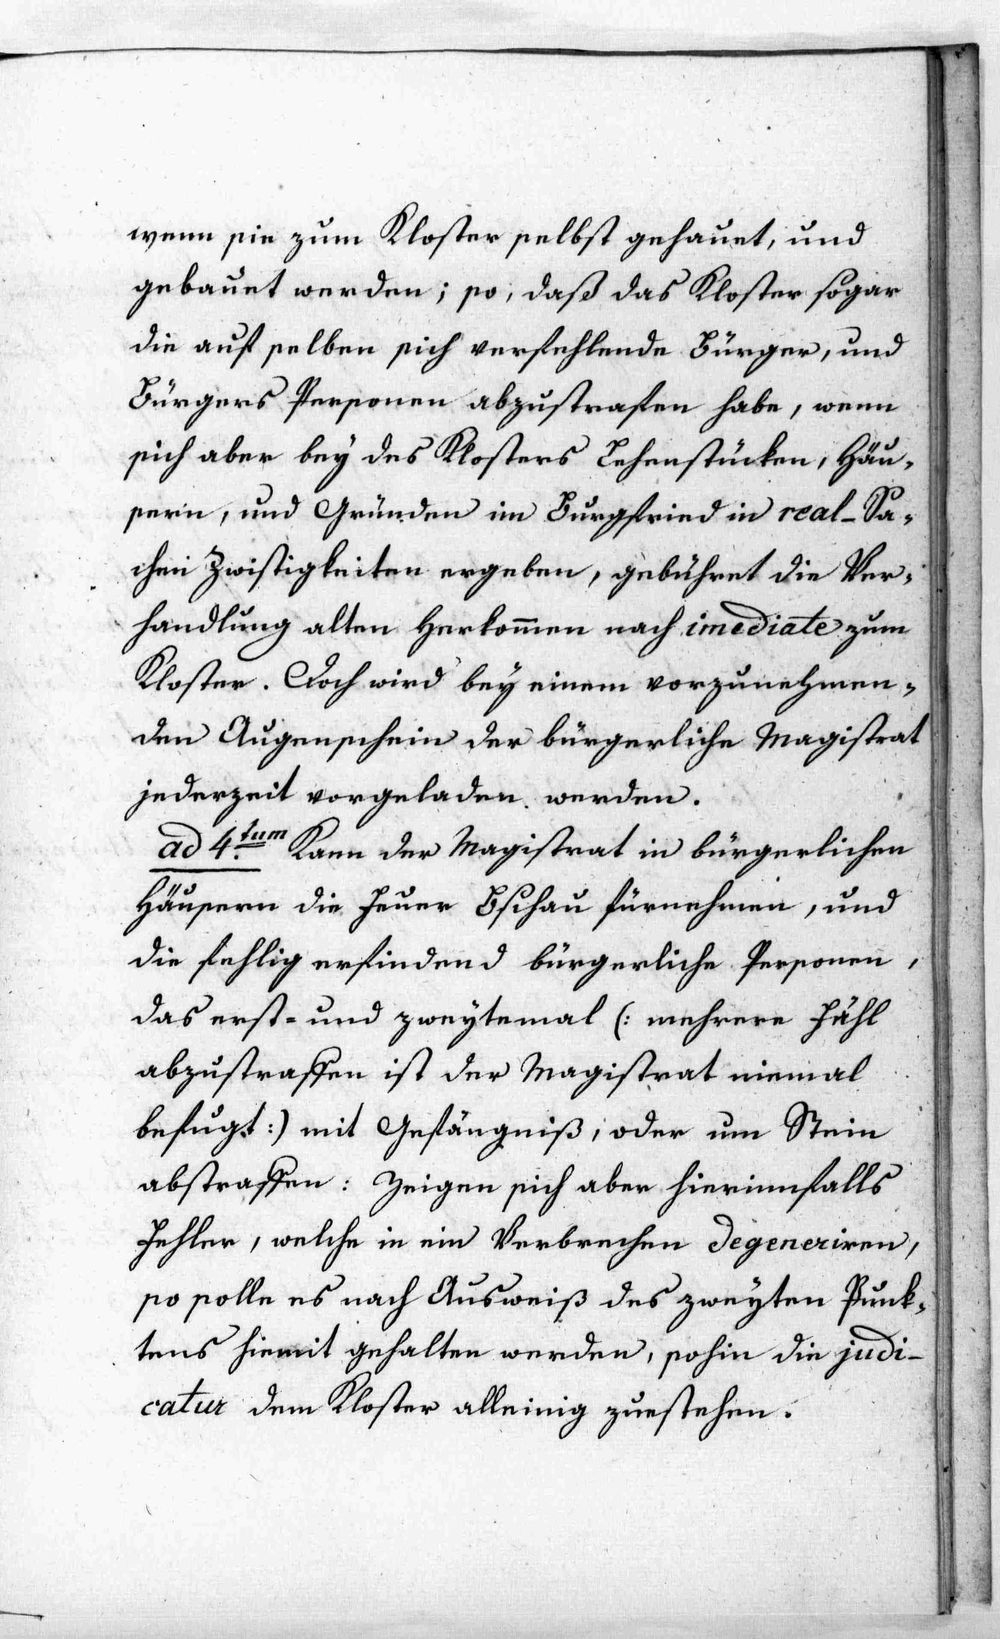 wenn sie zum Kloster selbst gehauet, und
gebauet werden; so, daß das Kloster sogar
die auf selben sich verfehlende Bürger, und
Bürgers Personen abzustrafen habe, wenn
sich aber bey des Klosters Lehenstücken, Häu-
sern, und Gründen im Burgfried in real-Sa-
chen Zwistigkeiten ergeben, gebühret die Ver-
handlung alten Herkom̅en nach imediate zum
Kloster. Doch wird bey einem vorzunehmen-
den Augenschein der bürgerliche Magistrat
jederzeit vorgeladen werden.
ad 4.tum Kann der Magistrat in bürgerlichen
Häusern die Feuer Bschau fürnehmen, und
die fehlig erfindend bürgerliche Personen,
das erst- und zweytemal (: mehrere Fähl
abzustraffen ist der Magistrat niemal
befugt :) mit Gefängniß, oder um Stein
abstraffen: Zeigen sich aber hierinnfalls
Fehler, welche in ein Verbrechen degeneriren,
so solle es nach Ausweiß des zweyten Punk-
tens hiemit gehalten werden, sohin die judi-
catur dem Kloster alleinig zuestehen.